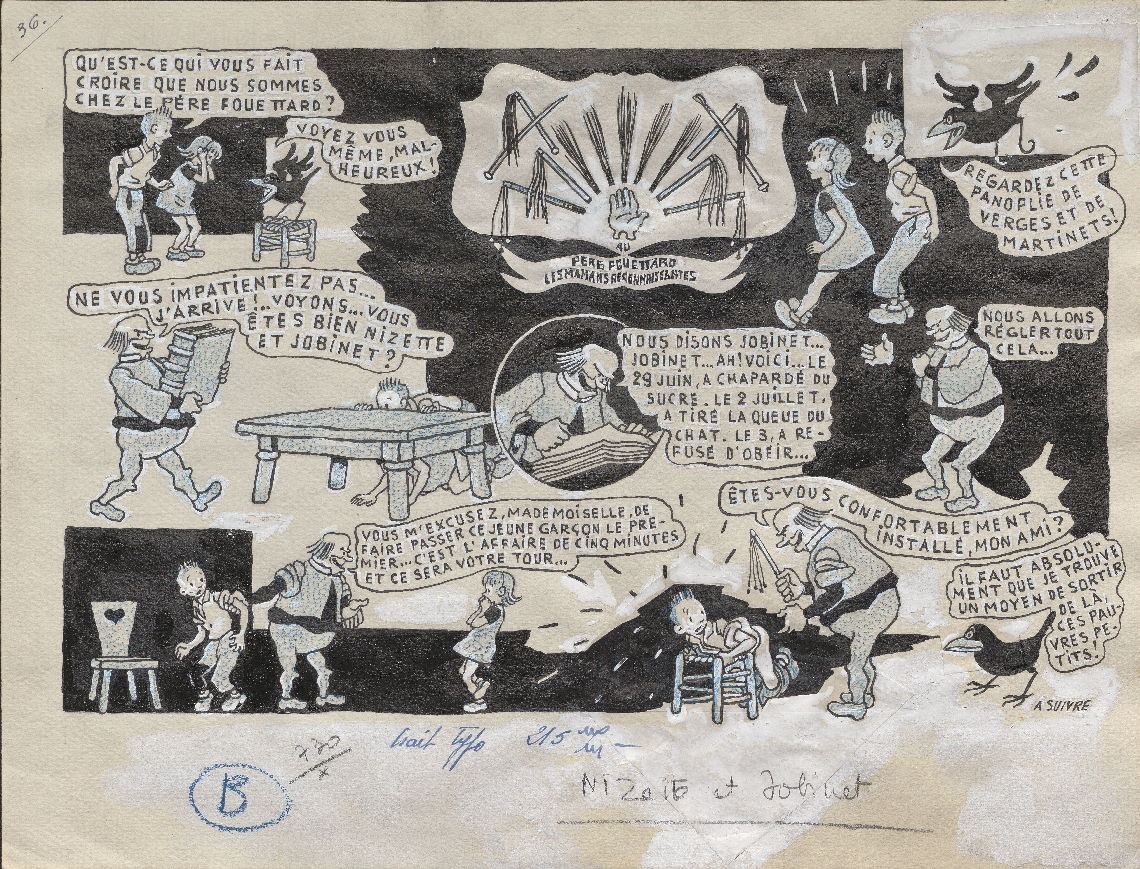 36.
QU'EST-CE QUI VOUS FAIT
CROIRE QUE NOUS SOMMES
CHEZ LE PÉRE FOUETTARD?
VOYEZ VOUS
MÊME, MAL-
HEUREUX!
AU
PÉRE FOUETTARD
LES MAMANS RECONNAISSANTES
REGARDEZ CETTE
PANOPLIE DE
VERGES ET DE
MARTINETS!
NE VOUS IMPATIENTEZ PAS...
J'ARRIVE!..VOYONS...VOUS
ÊTES BIEN NIZETTE
ET JOBINET?
NOUS DISONS JOBINET...
JOBINET...AH! VOICI...LE
29 JUIN, A CHAPARDÉ DU
SUCRE. LE 2 JUILLET,
A TIRÉ LA QUEUE DU
CHAT. LE 3, A RE-
FUSÉ D'OBÉIR...
NOUS ALLONS
RÉGLER TOUT
CELA...
VOUS M'EXCUSEZ, MADEMOISELLE, DE
FAIRE PASSER CE JEUNE GARÇON LE PRE-
MIER...C'EST L'AFFAIRE DE CINQ MINUTES
ET CE SERA VOTRE TOUR...
ÊTES-VOUS CONFORTABLEMENT
INSTALLÉ, MON AMI?
IL FAUT ABSOLU-
MENT QUE JE TROUVE
UN MOYEN DE SORTIR
DE LÀ,
CES PAU-
VRES PE-
TITS!
A SUIVRE
trait Typo 215
B